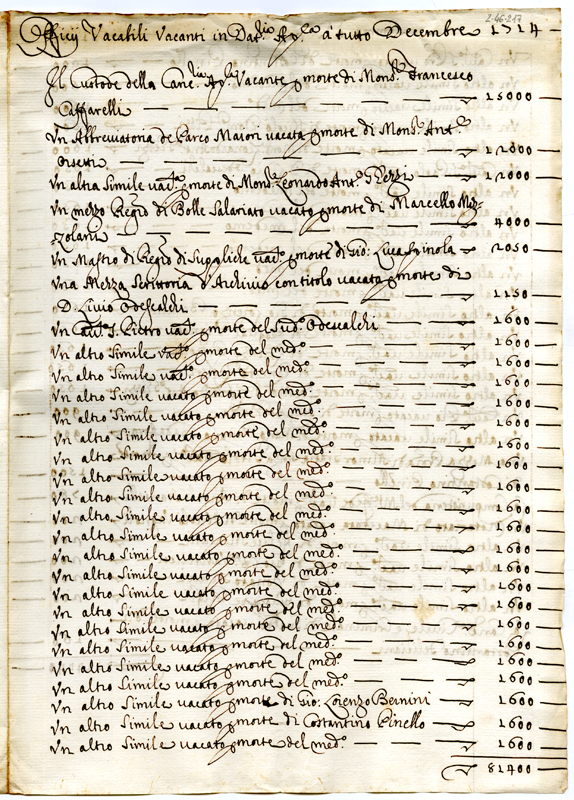 Officij Vacabili Vacanti in Dat.ria Ap.lica à tutto Decembre 1714
2-46-217
Il Custode della Canc.ria Ap.lica Vacante p morte di Mons.r Francesco
Caffarelli — 15000
Un Abbreviatora de Parco Maiori vacata p morte di Mons.r Ant.o
— 12000
Un altra Simile vac.ta p morte di Mons.r Leonardo Ant.o — 12000
Un mezzo Regro di Bolle Salariato vacato p morte di Marcello Me-
— 4000
Un Mastro di Regro di Suppliche vac.o p morte di Gio: Luca Spinola — 2050
Una Mezza Scrittoria d'Archivio con titolo vacata p morte di
D. Livio Odescalchi — 1150
Un Cav.to S. Pietro vac.o p morte del Sud.o Odescalchi — 1600
Un altro Simile vac.o p morte del med.o — 1600
Un altro Simile vac.o p morte del med.o — 1600
Un altro Simile vacato p morte del med.o — 1600
Un altro Simile vacato p morte del med.o — 1600
Un altro Simile vacato p morte del med.o — 1600
Un altro Simile vacato p morte del med.o — 1600
Un altro Simile vacato p morte del med.o — 1600
Un altro Simile vacato p morte del med.o — 1600
Un altro Simile vacato p morte del med.o — 1600
Un altro Simile vacato p morte del med.o — 1600
Un altro Simile vacato p morte del med.o — 1600
Un altro Simile vacato p morte del med.o — 1600
Un altro Simile vacato p morte del med.o — 1600
Un altro Simile vacato p morte del med.o — 1600
Un altro Simile vacato p morte del med.o — 1600
Un altro Simile vacato p morte del med.o — 1600
Un altro Simile vacato p morte del med.o — 1600
Un altro Simile vacato p morte del med.o — 1600
Un altro Simile vacato p morte di Gio: Lorenzo Bernini — 1600
Un altro Simile vacato p morte di Costantino Pinello — 1600
Un altro Simile vacato p morte del med.o — 1600
81400